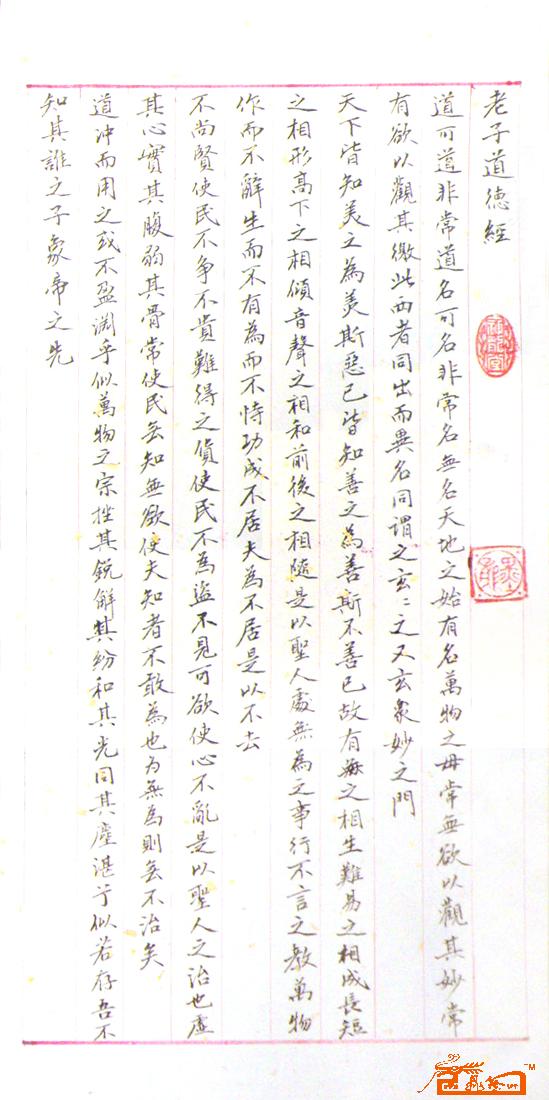 老子道德經
道可道非常道名可名非常名無名天地之始有名萬物之毋常無欲以觀其妙常
有欲以觀其徼此兩者同出而異名同謂之玄〻之又玄衆妙之門
天下皆知美之為美斯惡已皆知善之為善斯不善已故有無之相生難易之相成長短
之相形高下之相傾音聲之相和前後之相隨是以聖人處無為之事行不言之教萬物
作而不辭生而不有為而不恃功成不居夫為不居是以不去
不尚賢使民不争不貴難得之貨使民不為盗不見可欲使心不亂是以聖人之治也虛
其心實其腹弱其骨常使民無知無欲使夫知者不敢為也为無為則無不治矣
道沖而用之或不盈淵乎似萬物之宗挫其鋭解其紛和其光同其塵湛兮似若存吾不
知其誰之子象帝之先